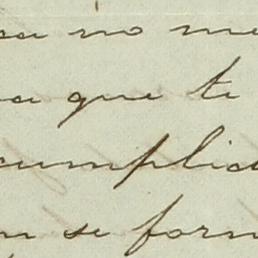 sa no me
a que te
cumplid
n se form